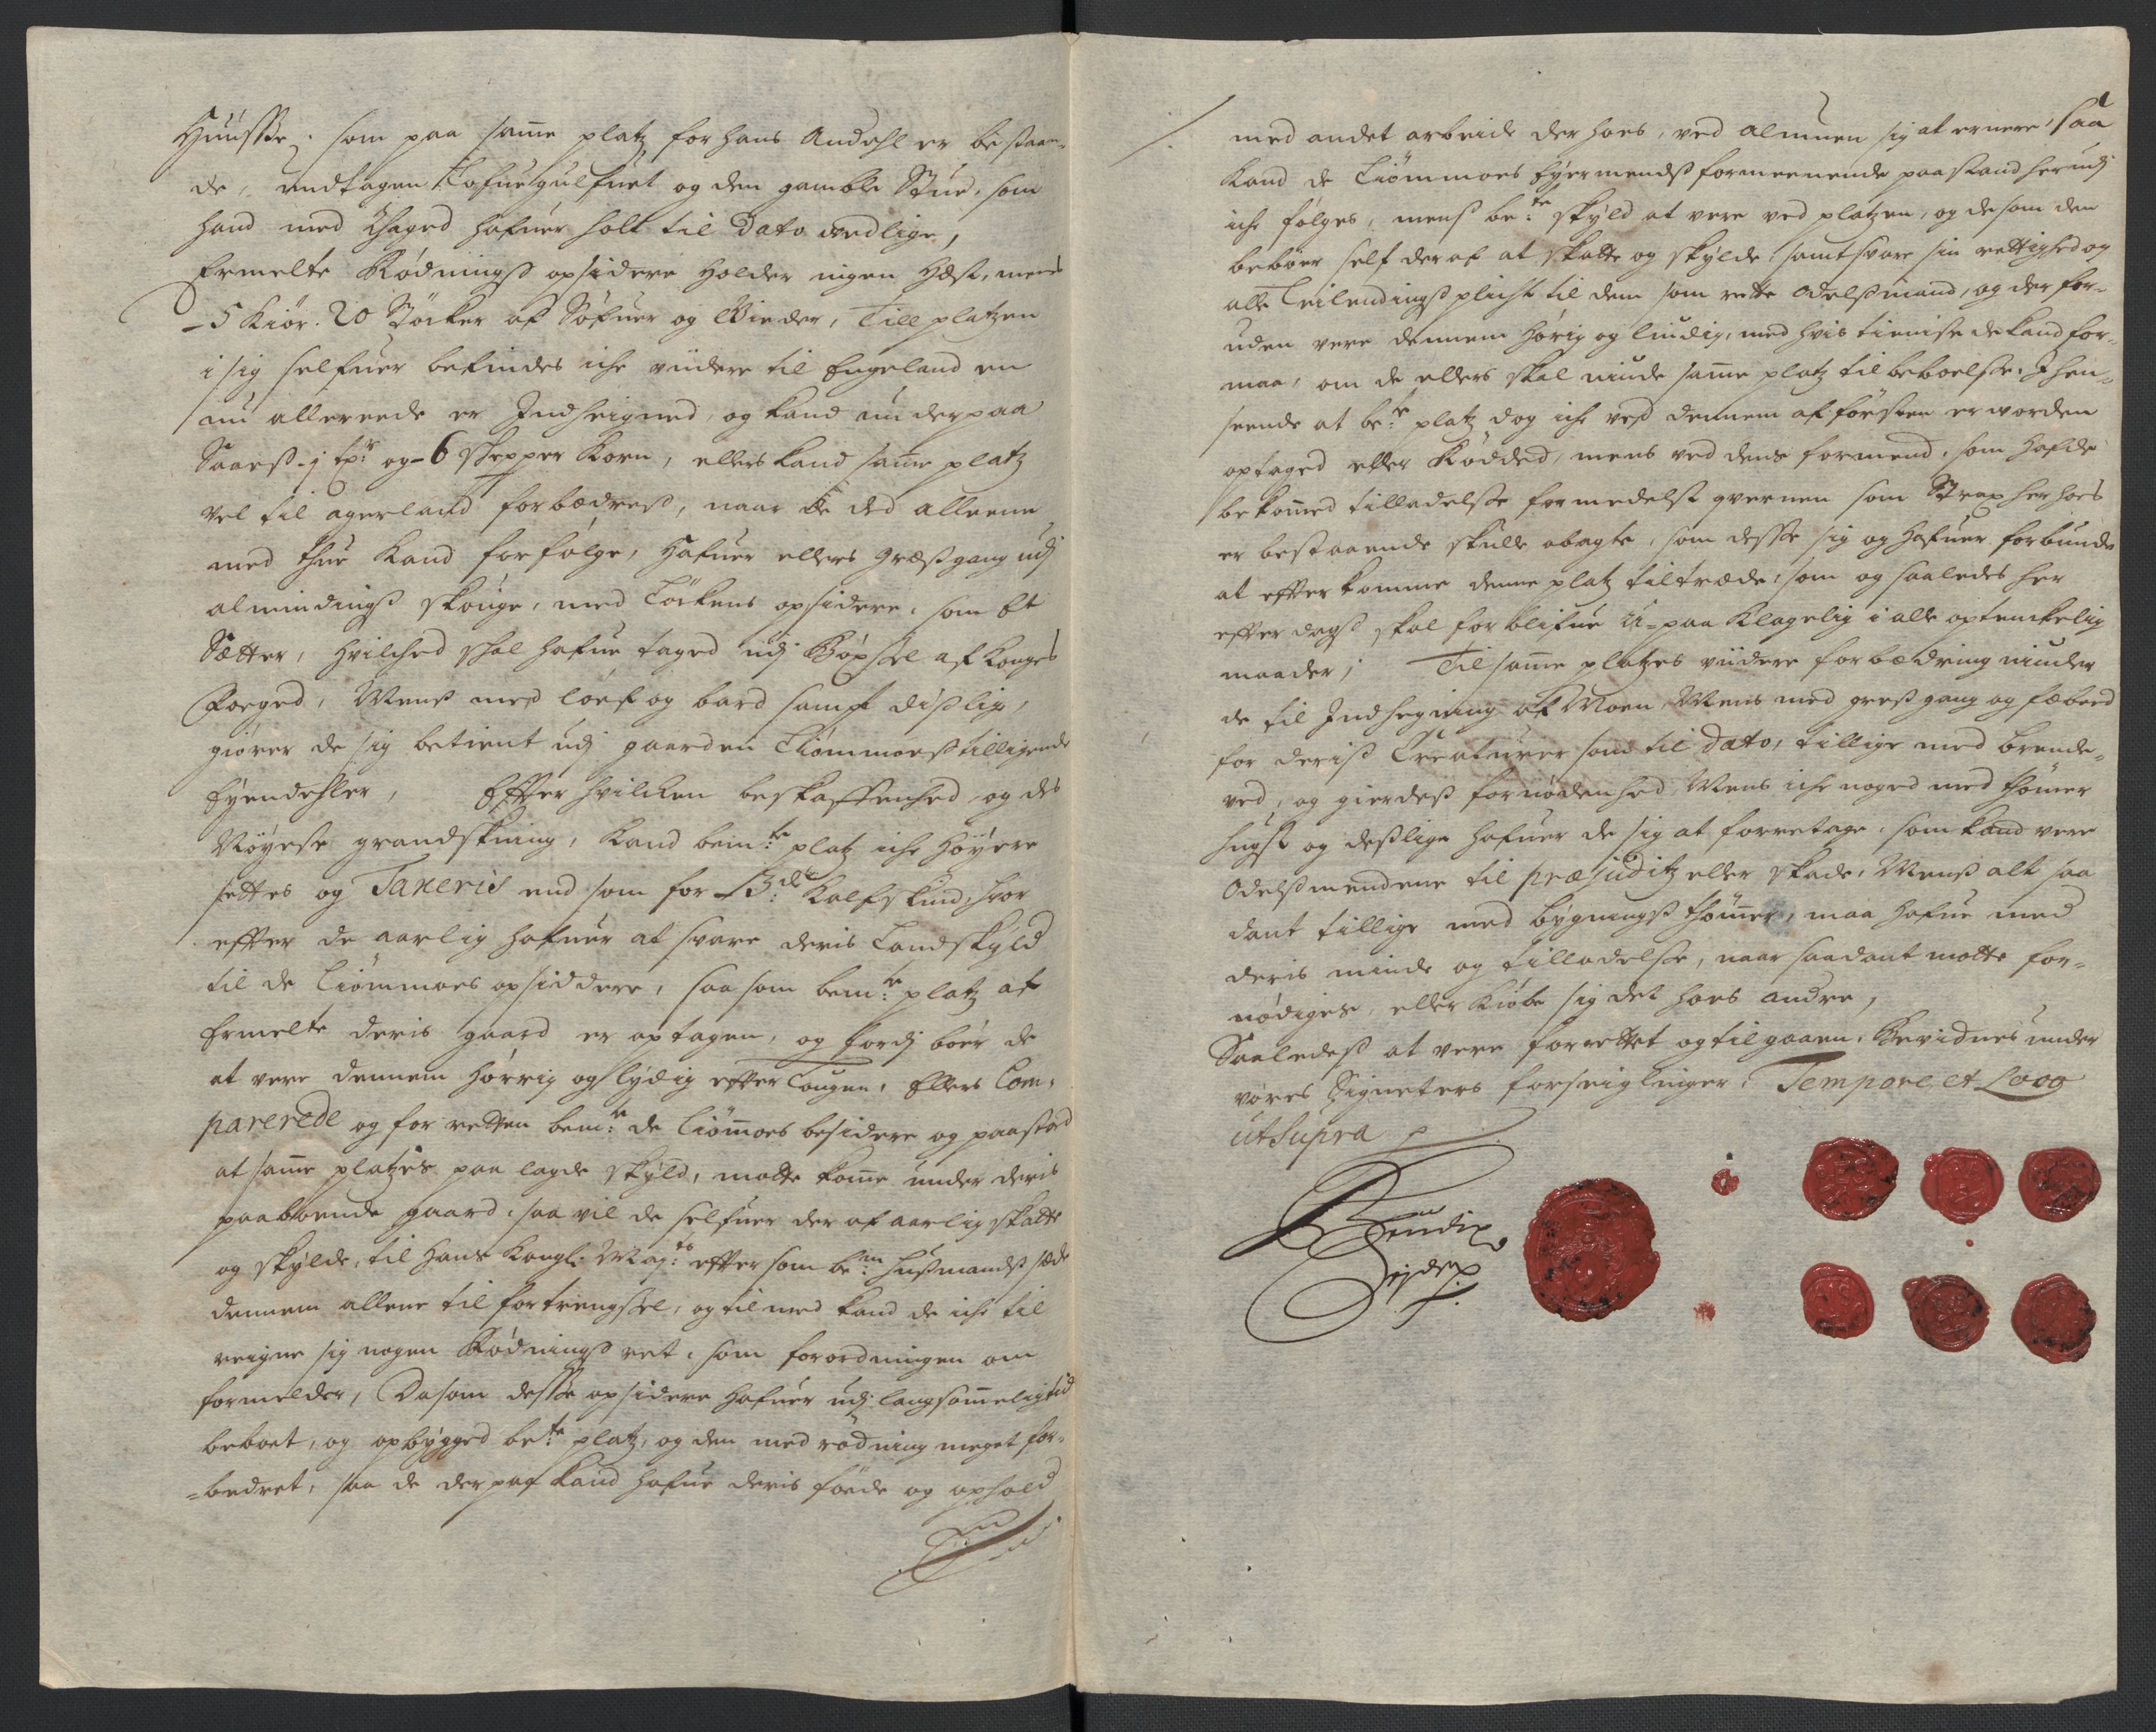 Huusße, som paa same platz for hans Andahl er bestaaen-
de, undtagen Lofuegulfuet og den gamble Stue, som
hand med Thaged hafuer holt til Dato vedlige,
Ermelte Rödnings opsidere holder ingen Hæst, mens
-5 Kiör. 20 Støcker af Söfuer og Wieder, Till platzen
i sig selfuer befindes iche viidere til Engeland en
nu allereede er Indheigned, og kand nu derpaa
Saaes -1 tp: og -6 Schepper Korn, ellers kand same platz
vel til agerland forbædres, naar de ded alleene
med thue kand forfølge, hafuer ellers Græsgang udj
almindings skouge, med Löckens opsidere, som Et
Sætter, hvilched schal hafue taged udj Böxsel af Konges
Foeged, Mens med löef og bard samt dißlig,
giører de sig betient udj gaarden Liømmoes tilligende
Eyendehler, Effter hvilcken beskaffenhed, og des
Nöyeste grandskning, kand bem:te platz iche Höyere
settes og Taxeris end som for -3:de Kalfskind, hvor
effter de aarlig hafuer at svare deris Landskyld
til de Liømmoes opsiddere, saa som bem:te platz af
Ermelte deris gaard er optagen, og fordj böer de
at vere dennem hörrig og lydig effter Lougen, Ellers Com-
parerede og for retten bem:te de Liömoes besidere og paastod
at same platzes paa lagde skyld, motte kome under deris
paaboende gaard, saa vil de selfuer der af aarlig skatte
og skylde, til Hans Kongl: May:ts effter som be:m husmands sæde
dennem allene til fortrengsel, og til med kand de iche til
reigne sig nogen Rødnings ret, som forordningen om
formelder, Dasom desße opsidere hafuer udj langsomelig tid
beboet, og opbygged be:te platz, og den med rødning meget for-
-bedret, saa de derpaa kand hafue deris föede og ophold
med andet arbeide der hoes, ved almuen sig at ernere, saa
kand de Liömmoes Eyermends formeenende paastand herudj
iche følges, mens be:te skyld at vere ved platzen, og de som den
beboer self der af at skatte og skylde, samt svare sin rettighed og
alle Leilendings plicht til dem som rette odelsmand, og der for-
uden vere dennem hörig og liudig, med hvis tieniste de kand for-
maa, om de ellers skal niude same platz til beboelse. I hen-
seende at be:te platz dog iche ved dennem af försten er worden
optaged eller Rödded, mens ved dens formend, som hafde
bekomed tilladelse formedelst qvernen som Strax her hoes
er bestaaende skulle obagte, som desße sig og hafuer forbunde
at effterkomme denne platz tiltræde, som og saaledes her
effter dags skal forblifue u-paa Klagelig i alle optenkelig
maader; Til same platzes viidere forbædring niuder
de til Indhegning af Moen, Mens med gresgang og fæbeed
for deris Creaturer som til dato, tillige med brende-
ved, og gierdes fornødenhed, Mens iche noged med thömer
hugst og deslige hafuer de sig at foretage, som kand vere
Odelsmendene til præjuditz eller skade, Mens alt saa
dant tillige med bygnings thömer, maa hafue med
deris minde og tilladelse, naar saadant motte for-
nødiges, eller kiøbe sig det hoes andre,
Saaledes at vere forrettet og tilgaaen, Bevidnes under
vores Signeters forseiglinger. Tempore et Loco
ut Supra